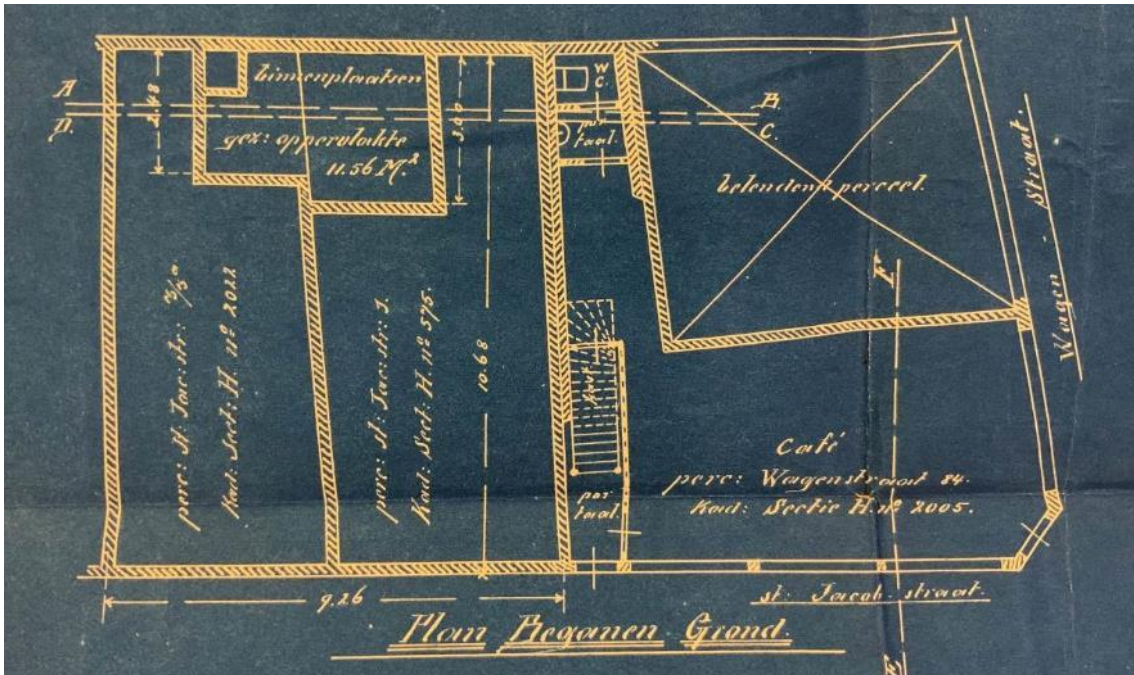 A
D.
2.48
binnenplaatsen
gez: oppervlakte
11.56 M.²
3.00
W
C.
por
taal.
B.
C.
belendend perceel.
Wagen - Straat.
perc: St. Jac: str: 3/5ᵃ
Kad: Sect: H. nº 2022
perc: st: Jac: str: 3.
Kad: Sect: H. nº 575.
10.68
F
Café
perc: Wagenstraat 84.
Kad: Sectie H. nº 2005.
por
taal.
9.26
st: Jacob straat.
Plan Beganen Grond.
E